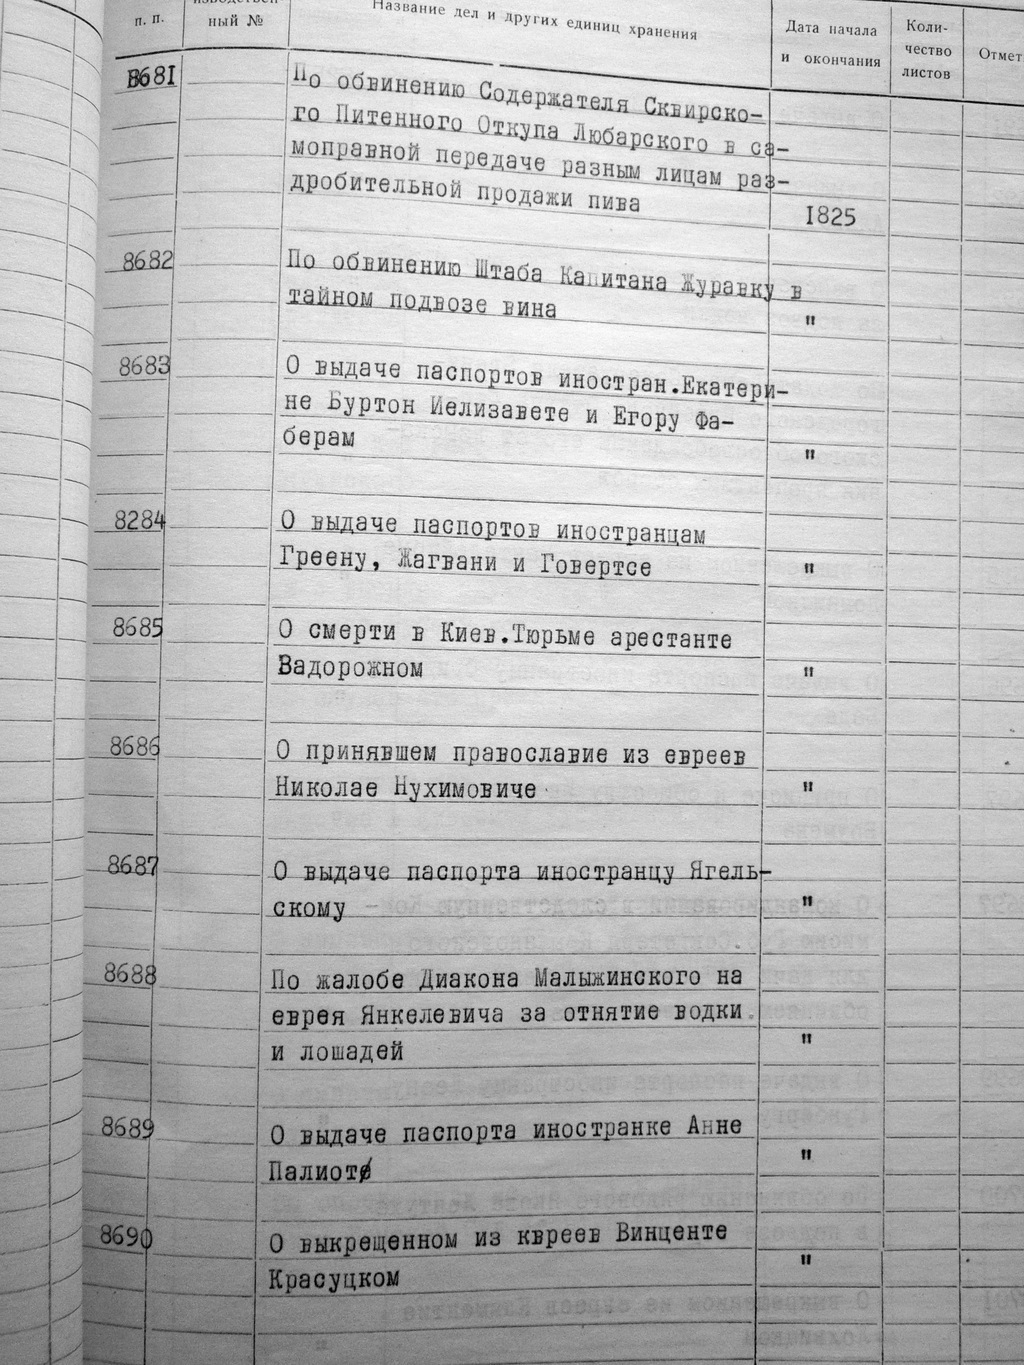 п. п.
ный №
Название дел и других единиц хранения
Дата начала
и окончания
Коли-
чество
листов
Отмет
8681
По обвинению Содержателя Сквирско-
го Питенного Откупа Любарского в са-
моправной передаче разным лицам раз-
дробительной продажи пива
1825
8682
По обвинению Штаба Капитана Журавку в
тайном подвозе вина
"
8683
О выдаче паспортов иностран.Екатери-
не Буртон Иелизавете и Егору Фа-
берам
"
8284
О выдаче паспортов иностранцам
Греену, Жагвани и Говертсе
"
8685
О смерти в Киев.Тюрьме арестанте
Вадорожном
"
8686
О принявшем православие из евреев
Николае Нухимовиче
"
8687
О выдаче паспорта иностранцу Ягель-
скому
"
8688
По жалобе Диакона Малыжинского на
еврея Янкелевича за отнятие водки
и лошадей
"
8689
О выдаче паспорта иностранке Анне
Палиот
"
8690
О выкрещенном из квреев Винценте
Красуцком
"